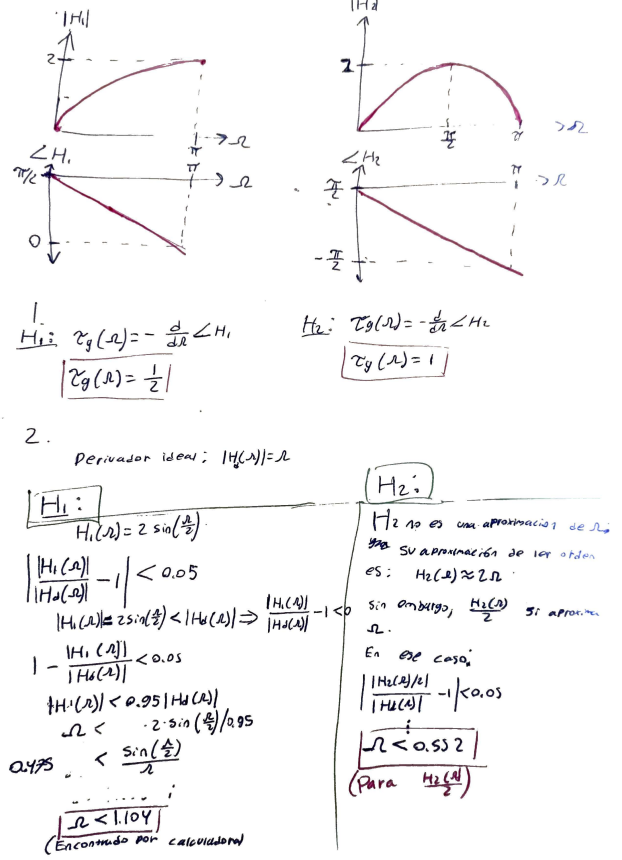 |H₁|
2
π
→ Ω
∠H₁
π/2
π
→ Ω
0
|H₂|
2
π/2
π
→ Ω
∠H₂
π/2
π
→ Ω
-π/2
1
H₁: τg(Ω) = - d/dΩ ∠H₁
τg(Ω) = 1/2
H₂: τg(Ω) = - d/dΩ ∠H₂
τg(Ω) = 1
2.
Derivador ideal: |Hd(Ω)| = Ω
H₁:
H₁(Ω) = 2 sin(Ω/2)
||H₁(Ω)|/|Hd(Ω)| - 1| < 0.05
|H₁(Ω)| = 2 sin(Ω/2) < |Hd(Ω)| ⇒ |H₁(Ω)|/|Hd(Ω)| - 1 < 0
1 - |H₁(Ω)|/|Hd(Ω)| < 0.05
|H₁(Ω)| < 0.95 |Hd(Ω)|
Ω < 2 · sin(Ω/2)/0.95
0.475 < sin(Ω/2)/Ω
Ω < 1.104
(Encontrado por calculadora)
H₂:
H₂ no es una aproximación de Ω;
su aproximación de 1er orden
es: H₂(Ω) ≈ 2Ω
sin embargo, H₂(Ω)/2 si aproxima
Ω.
En ese caso:
||H₂(Ω)/2|/|Hd(Ω)| - 1| < 0.05
⋮
Ω < 0.552
(Para H₂(Ω)/2)